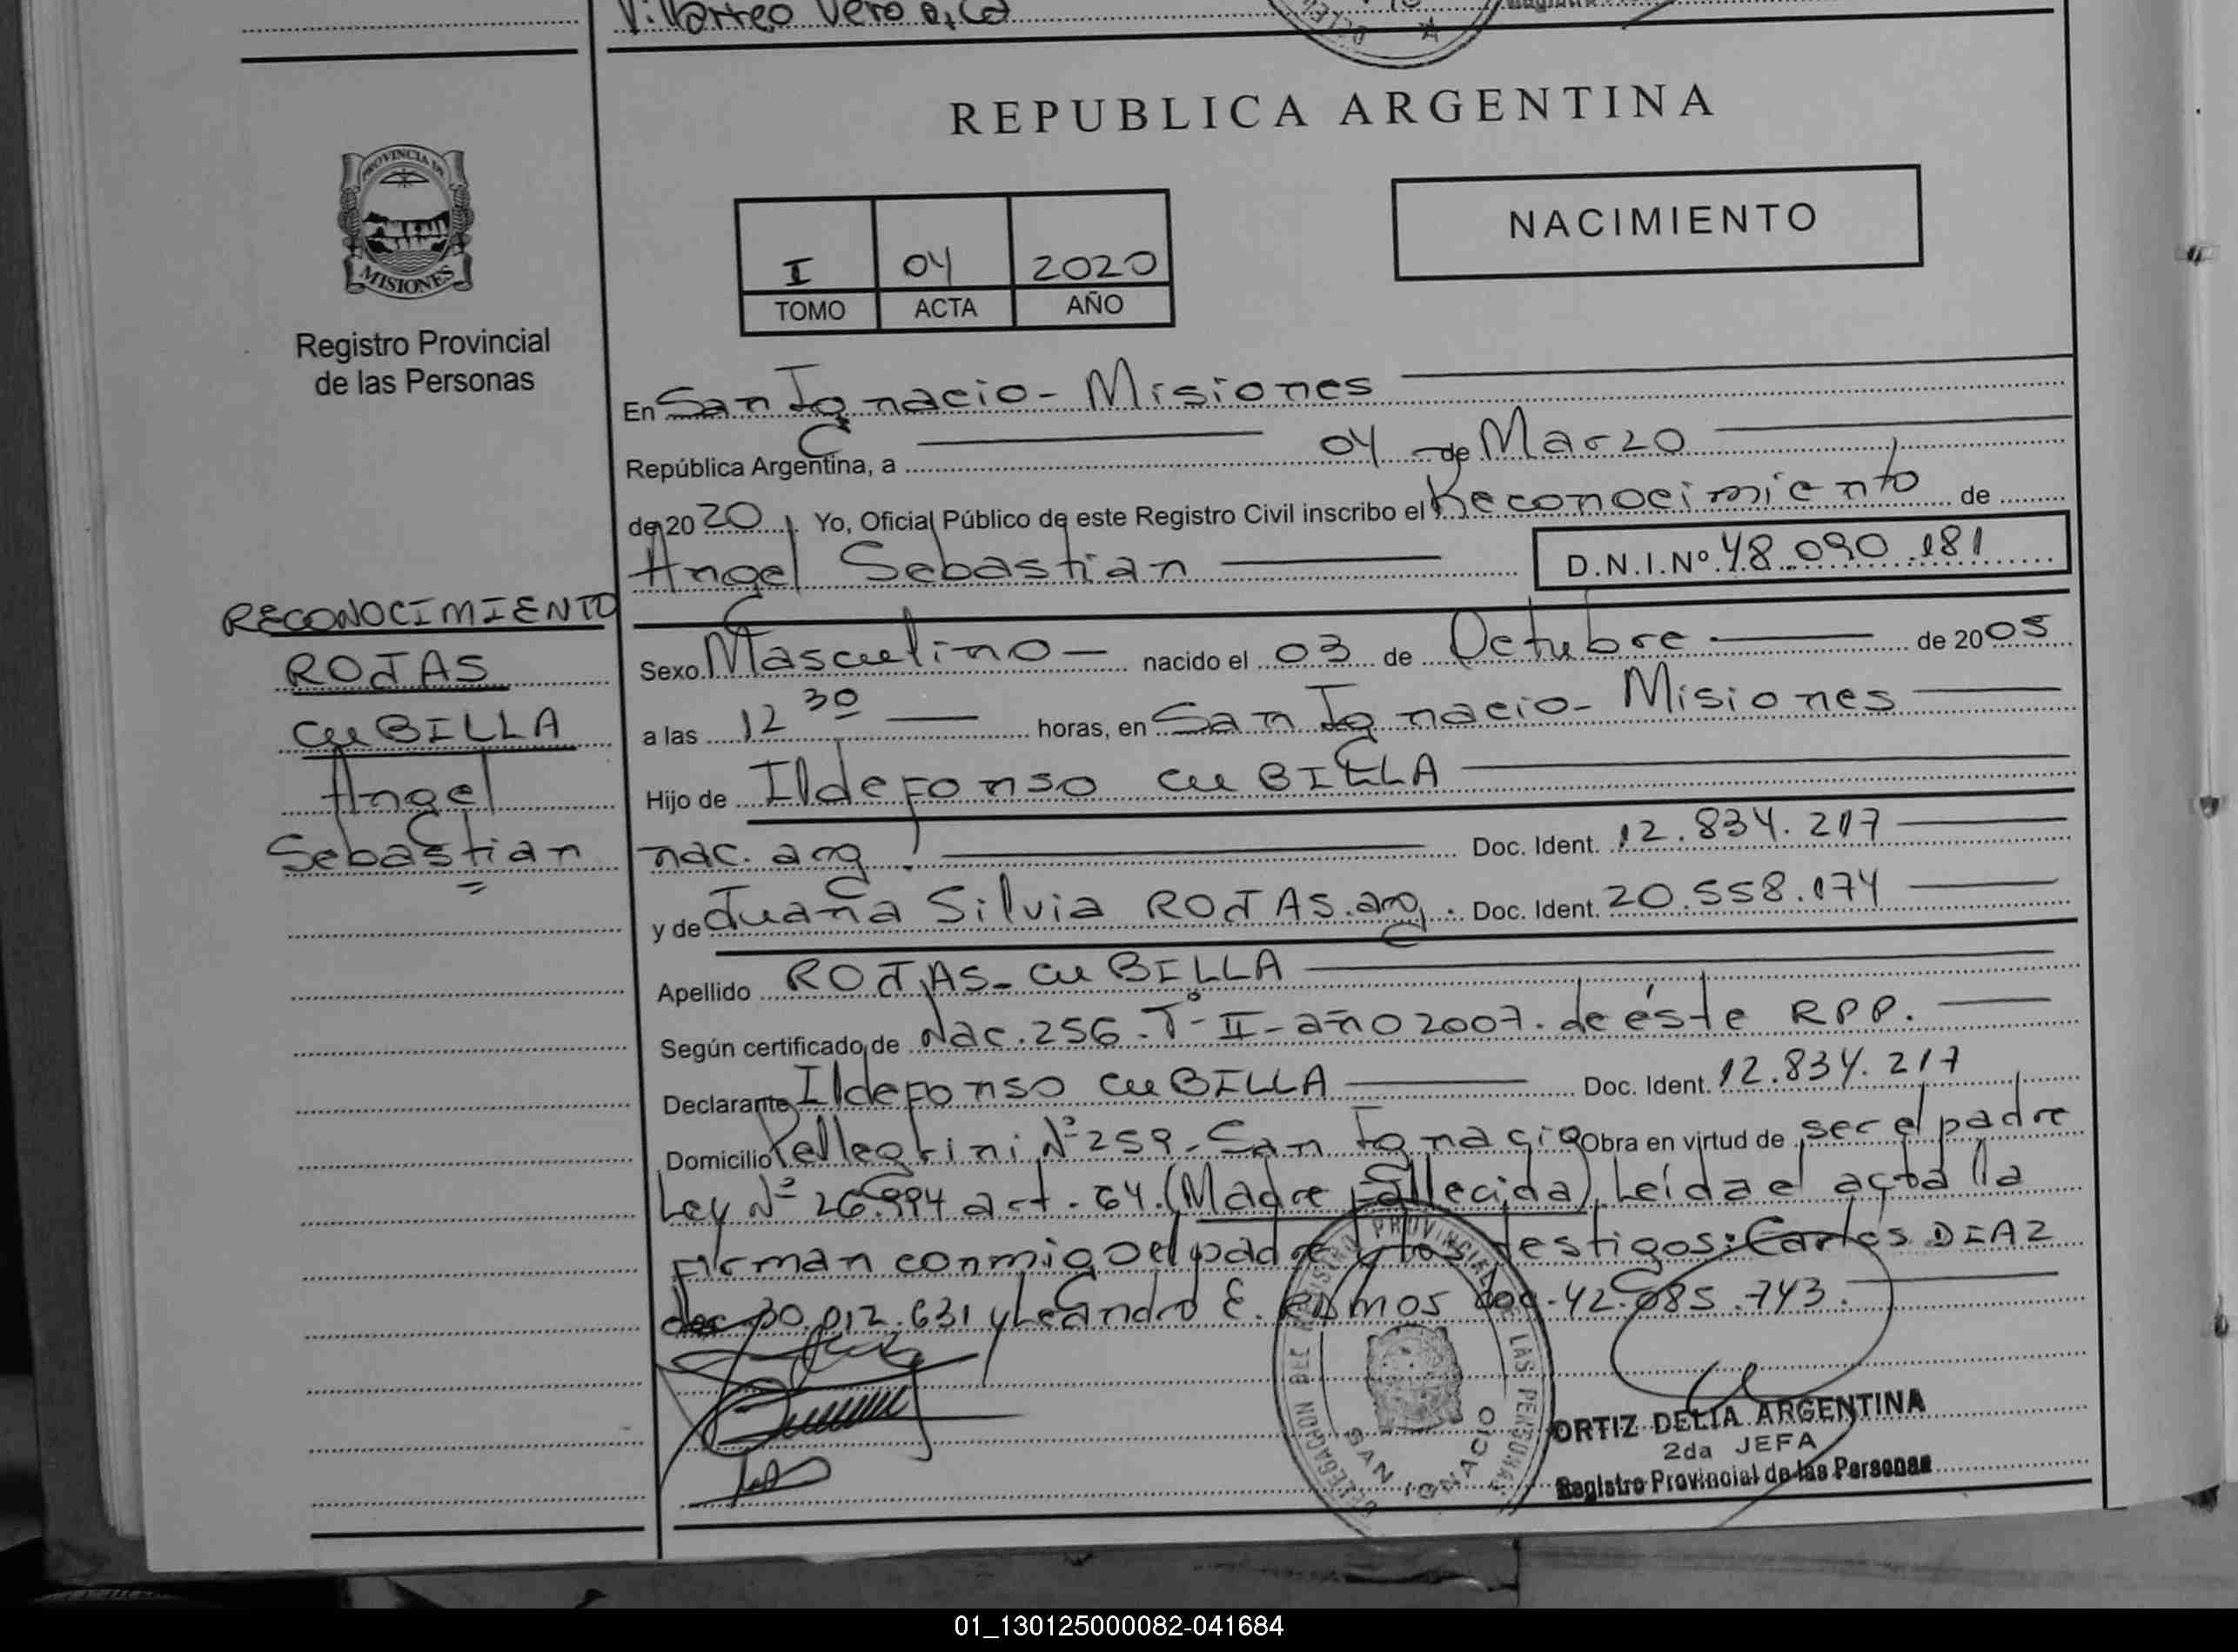 Villarreo Veronica
REPUBLICA ARGENTINA
PROVINCIA DE
MISIONES
Registro Provincial
de las Personas
I 04 2020
TOMO ACTA AÑO
NACIMIENTO
En San Ignacio - Misiones
República Argentina, a 04 de Marzo
de 2020. Yo, Oficial Público de este Registro Civil inscribo el Reconocimiento de
Angel Sebastian D.N.I.Nº 48.090.181
RECONOCIMIENTO
ROJAS
CUBILLA
Angel
Sebastian
Sexo Masculino nacido el 03 de Octubre de 2005
a las 12 30 horas, en San Ignacio - Misiones
Hijo de Ildefonso CUBILLA
nac. arg. Doc. Ident. 12.834.217
y de Juana Silvia ROJAS. arg. Doc. Ident. 20.558.174
Apellido ROJAS - CUBILLA
Según certificado de Nac. 256. Tº II - año 2007. de éste RPP.
Declarante Ildefonso CUBILLA Doc. Ident. 12.834.217
Domicilio Pellegrini Nº 259 - San Ignacio Obra en virtud de ser el padre
Ley Nº 26.994 art. 64. (Madre Fallecida). Leída el acta la
Firman conmigo el padre y los testigos: Carlos DIAZ
doc 30.012.631 y Leandro E. doc. 42.085.743.
DELEGACION DEL REGISTRO PROVINCIAL DE LAS PERSONAS
SAN IGNACIO
ORTIZ DELIA ARGENTINA
2da JEFA
Registro Provincial de las Personas
01_130125000082-041684